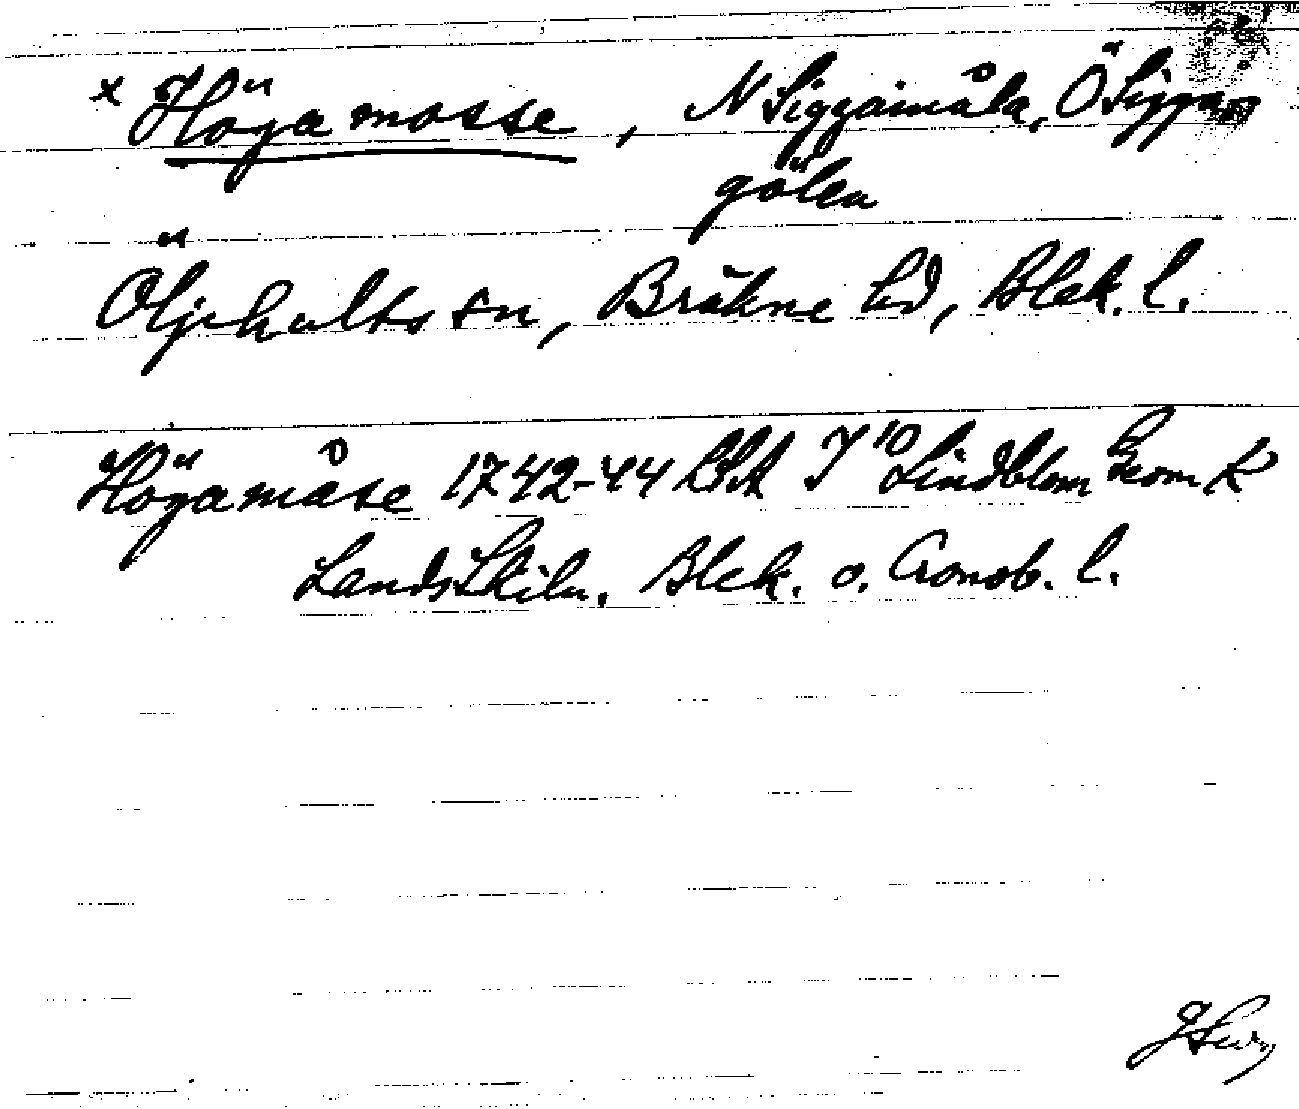 x Högamosse, N Siggamåla, Ö Sigga
gölen
Öljehults sn, Bräkne hd, Blek. l.
Högamåse 1742-44 LSA Y 10 Lindblom Geom K
Landsskiln. Blek. o. Cronob. l.